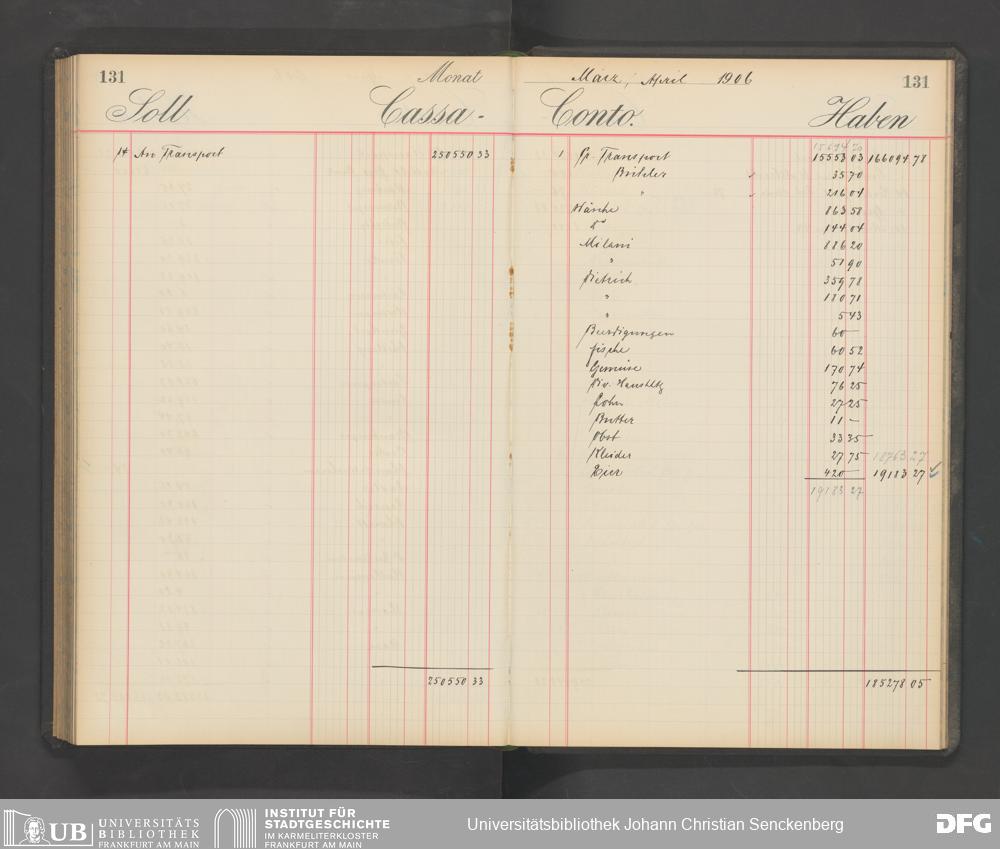 131 Monat
Soll Cassa-
14 An Transport 250550 33
250550 33
März, April 1906 131
Conto. Haben
1 Pr. Transport 15553 03 166094 78
35 70
" 216 04
863 58
d° 144 04
Milani 886 20
" 51 90
Dietrich 359 78
" 180 71
" 5 43
Beerdigungen 60 —
Fische 60 52
Gemüse 170 74
Div. Haushltg 76 25
Lohn 27 25
Butter 11 —
Obst 33 35
Kleider 27 75 18763 27
Eier 420 — 19183 27
19183 27
185278 05
UB UNIVERSITÄTS
BIBLIOTHEK
FRANKFURT AM MAIN
INSTITUT FÜR
STADTGESCHICHTE
IM KARMELITERKLOSTER
FRANKFURT AM MAIN
Universitätsbibliothek Johann Christian Senckenberg
DFG